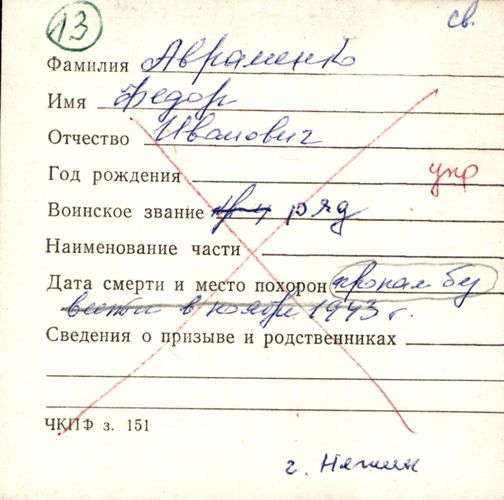 13 св.
Фамилия Авраменко
Имя Федор
Отчество Иванович
Год рождения
укр
Воинское звание ряд
Наименование части
Дата смерти и место похорон пропал без
вести в ноябре 1943 г.
Сведения о призыве и родственниках
ЧКПФ з. 151
г. Нежин